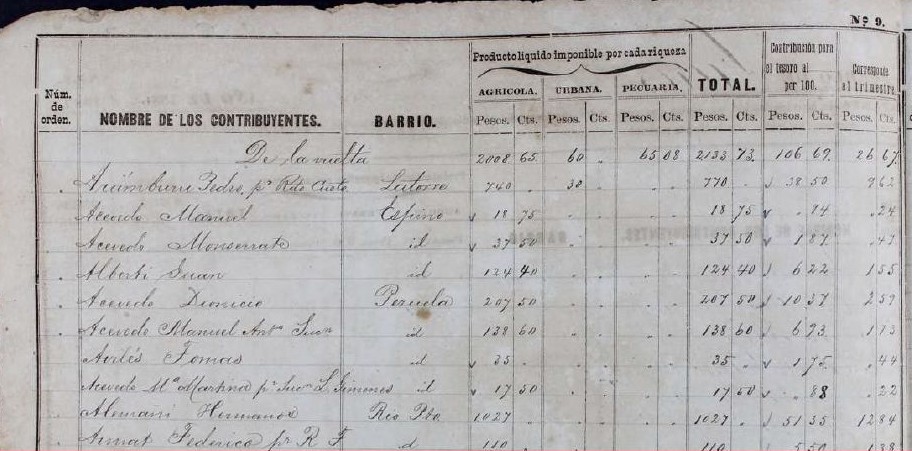 Nº 9.
Producto líquido imponible por cada riqueza
Contribución para el tesoro al per 100.
Corresponde al trimestre
Núm. de orden.
NOMBRE DE LOS CONTRIBUYENTES.
BARRIO.
AGRICOLA. URBANA. PECUARIA. TOTAL.
Pesos. Cts. Pesos. Cts. Pesos. Cts. Pesos. Cts. Pesos. Cts. Pesos. Cts.
De la vuelta 2008 65 60 65 08 2133 73 106 69 26 67
Pedro, pr Latorre 740 30 770 38 50 9 62
Acevedo Manuel Espino 18 75 18 75 94 24
Acevedo Monserrate id 37 50 37 50 1 87 47
Alberti Juan id 124 40 124 40 6 22 1 55
Acevedo Dionicio Pezuela 207 50 207 50 10 37 2 59
Acevedo Manuel Antº Sucn id 138 60 138 60 6 93 1 73
Avilés Tomas id 35 35 1 75 44
Acevedo Mª Martina pr Sucn Gimenes id 17 50 17 50 88 22
Alemani Hermanos Rio Pto. 1027 1027 51 35 12 84
Armat Federico pr R F d 110 110 5 50 1 38